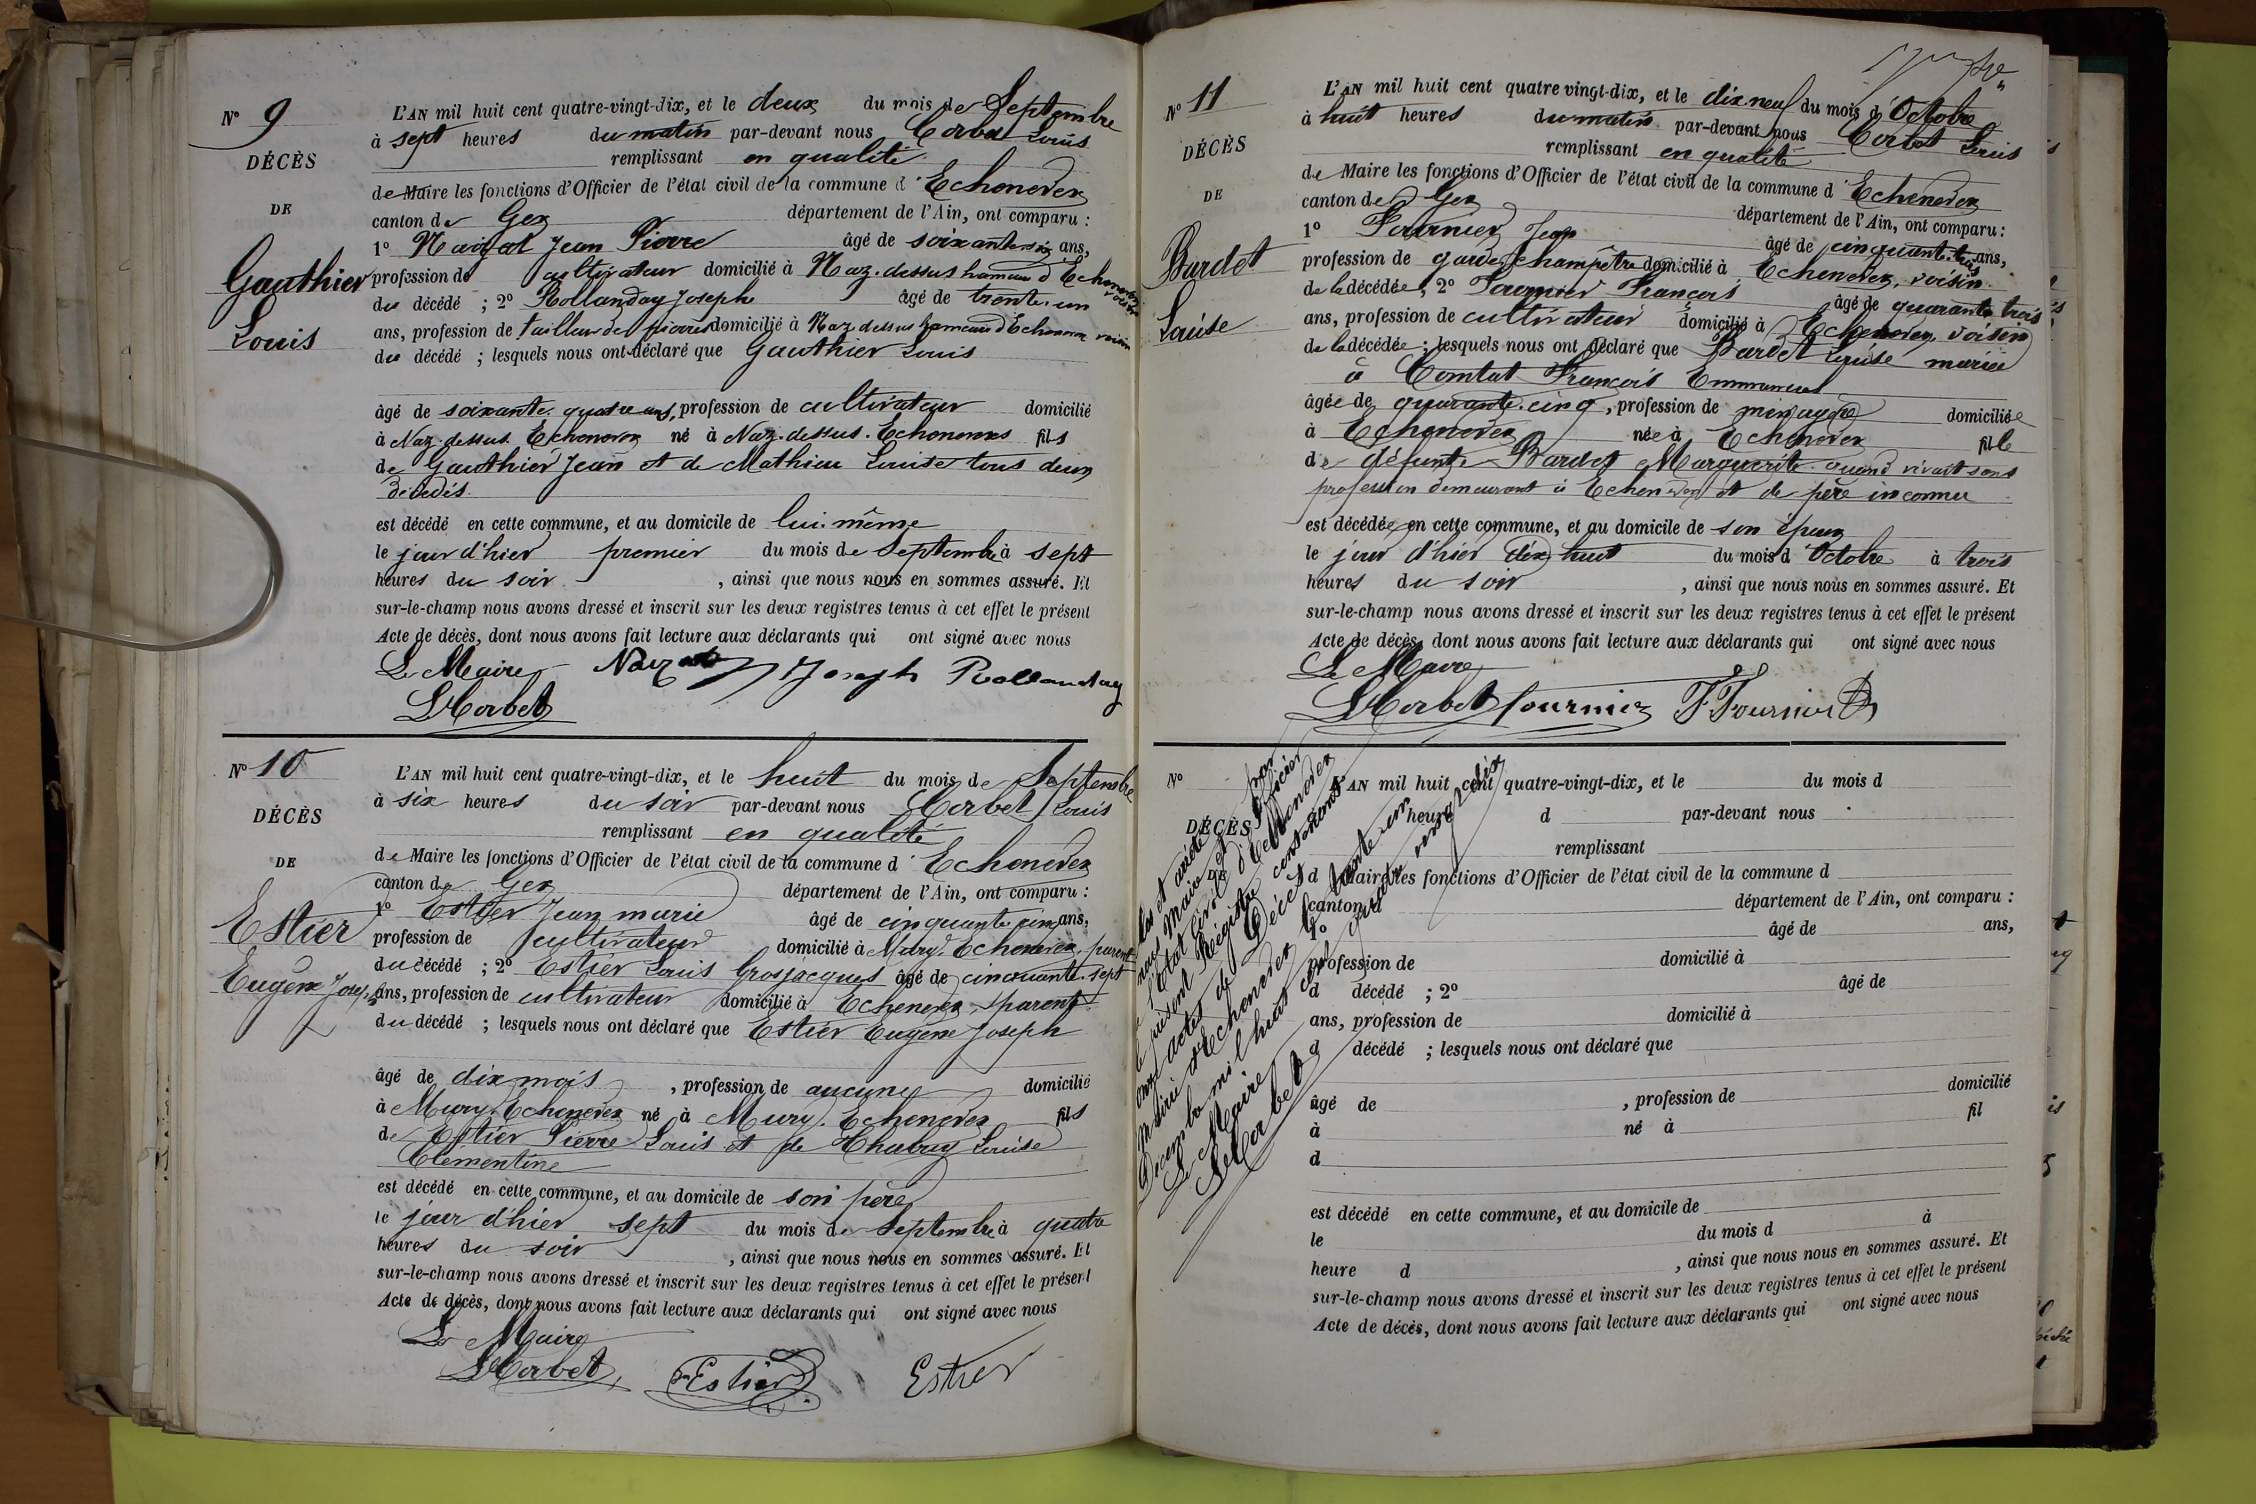 N° 9
DÉCÈS
DE
Gauthier
Louis
L'AN mil huit cent quatre-vingt-dix, et le deux du mois de Septembre
à sept heures du matin par-devant nous Corbet Louis
remplissant en qualité
de Maire les fonctions d'Officier de l'état civil de la commune d'Echenevex
canton de Gex département de l'Ain, ont comparu :
1° Jean Pierre âgé de ans,
profession de cultivateur domicilié à Naz-dessus hameau d'Echenevex voisin
du décédé ; 2° Rollanday Joseph âgé de trente-un
ans, profession de tailleur de pierres domicilié à Naz dessus hameau d'Echenevex voisin
du décédé ; lesquels nous ont déclaré que Gauthier Louis
âgé de soixante-quatre ans, profession de cultivateur domicilié
à Naz-dessus Echenevex né à Naz-dessus-Echenevex fils
de Gauthier Jean et de Mathieu Louise tous deux
décédés.
est décédé en cette commune, et au domicile de lui-même
le jour d'hier premier du mois de Septembre à sept
heures du soir , ainsi que nous nous en sommes assuré. Et
sur-le-champ nous avons dressé et inscrit sur les deux registres tenus à cet effet le présent
Acte de décès, dont nous avons fait lecture aux déclarants qui ont signé avec nous
Le Maire Joseph Rollanday
LCorbet
N° 10
DÉCÈS
DE
Estier
Eugène Joseph
L'AN mil huit cent quatre-vingt-dix, et le huit du mois de Septembre
à six heures du soir par-devant nous Corbet Louis
remplissant en qualité
de Maire les fonctions d'Officier de l'état civil de la commune d'Echenevex
canton de Gex département de l'Ain, ont comparu :
1° Estier Jean marie âgé de cinquante cinq ans,
profession de cultivateur domicilié à Mury Echenevex, parent
du décédé ; 2° Estier Louis Grosjacques âgé de cinquante-sept
ans, profession de cultivateur domicilié à Echenevex, parent
du décédé ; lesquels nous ont déclaré que Estier Eugène Joseph
âgé de dix mois , profession de aucune domicilié
à Mury Echenevex né à Mury Echenevex fils
de Estier Pierre Louis et de Louise
Clementine
est décédé en cette commune, et au domicile de son père
le jour d'hier sept du mois de Septembre à quatre
heures du soir , ainsi que nous nous en sommes assuré. Et
sur-le-champ nous avons dressé et inscrit sur les deux registres tenus à cet effet le présent
Acte de décès, dont nous avons fait lecture aux déclarants qui ont signé avec nous
Le Maire
LCorbet Estier Estier
N° 11
DÉCÈS
DE
Bardet
Louise
L'AN mil huit cent quatre vingt-dix, et le dix-neuf du mois d'Octobre
à huit heures du matin par-devant nous Corbet Louis
remplissant en qualité
de Maire les fonctions d'Officier de l'état civil de la commune d'Echenevex
canton de Gex département de l'Ain, ont comparu :
1° Fournier Jean âgé de cinquante-trois ans,
profession de garde champêtre domicilié à Echenevex, voisin
de la décédée, 2° Fournier François âgé de quarante trois
ans, profession de cultivateur domicilié à Echenevex, voisin
de la décédée ; lesquels nous ont déclaré que Bardet Louise mariée
à Comtat François Emmanuel
âgée de quarante-cinq , profession de ménagère domiciliée
à Echenevex née à Echenevex fille
de défunte Bardet Marguerite quand vivait sans
profession demeurant à Echenevex et de père inconnu
est décédée en cette commune, et au domicile de son époux
le jour d'hier dix-huit du mois d'Octobre à trois
heures du soir , ainsi que nous nous en sommes assuré. Et
sur-le-champ nous avons dressé et inscrit sur les deux registres tenus à cet effet le présent
Acte de décès, dont nous avons fait lecture aux déclarants qui ont signé avec nous
Le Maire
LCorbet fournier F Fournier
Clos et arrêté par
nous Maire et Officier
de l'état civil d'Echenevex
le présent Régistre contenant
onze actes de Décès
Mairie d'Echenevex le trente-un
Décembre mil huit cent quatre vingt dix
Le Maire
LCorbet
N°
DÉCÈS
L'AN mil huit cent quatre-vingt-dix, et le du mois d
heure d par-devant nous
remplissant
d Maire les fonctions d'Officier de l'état civil de la commune d
canton d département de l'Ain, ont comparu :
1° âgé de ans,
profession de domicilié à
d décédé ; 2° âgé de
ans, profession de domicilié à
d décédé ; lesquels nous ont déclaré que
âgé de , profession de domicilié
à né à fil
d
est décédé en cette commune, et au domicile de
le du mois d à
heure d , ainsi que nous nous en sommes assuré. Et
sur-le-champ nous avons dressé et inscrit sur les deux registres tenus à cet effet le présent
Acte de décès, dont nous avons fait lecture aux déclarants qui ont signé avec nous